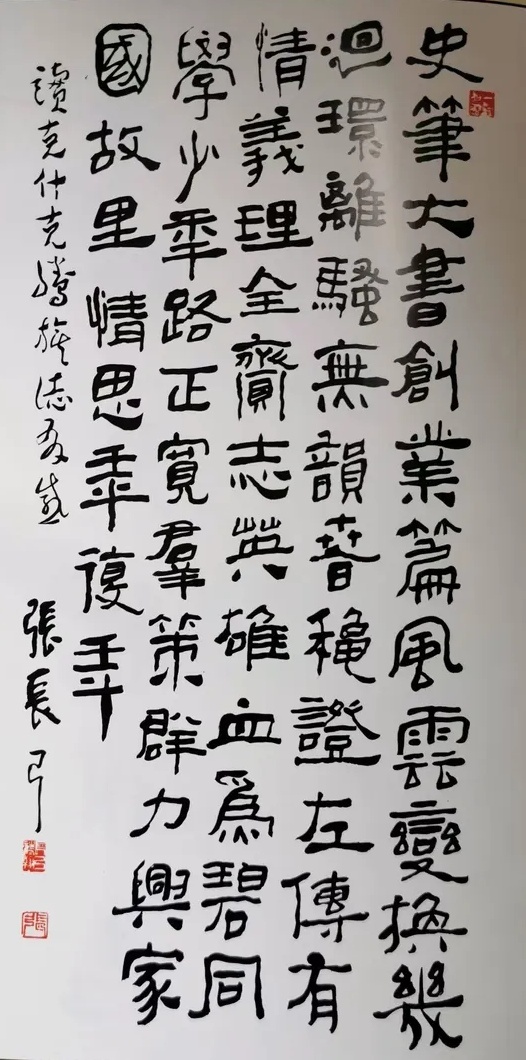 史筆大書創業篇風雲變換幾
迴環離騷無韻春穐證左傳有
情義理全齎志英雄血爲碧同
學少年路正寬羣策群力興家
國故里情思年復年
讀克什克騰旗志有感
張長弓